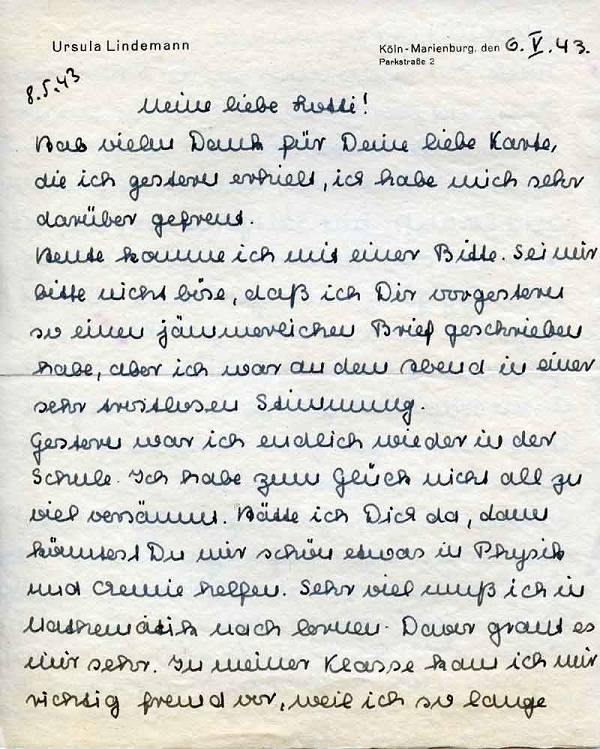 Ursula Lindemann
Köln-Marienburg, den 6. V. 43.
Parkstraße 2
8.5.43
Meine liebe Lotti!
Hab vielen Dank für Deine liebe Karte,
die ich gestern erhielt, ich habe mich sehr
darüber gefreut.
Heute komme ich mit einer Bitte. Sei mir
bitte nicht böse, daß ich Dir vorgestern
so einen jämmerlichen Brief geschrieben
habe, aber ich war an dem Abend in einer
sehr trostlosen Stimmung.
Gestern war ich endlich wieder in der
Schule. Ich habe zum Glück nicht all zu
viel versäumt. Hätte ich Dich da, dann
könntest Du mir schön etwas in Physik
und Chemie helfen. Sehr viel muß ich in
Mathematik nach lernen. Davor graut es
mir sehr. In meiner Klasse kam ich mir
richtig fremd vor, weil ich so lange